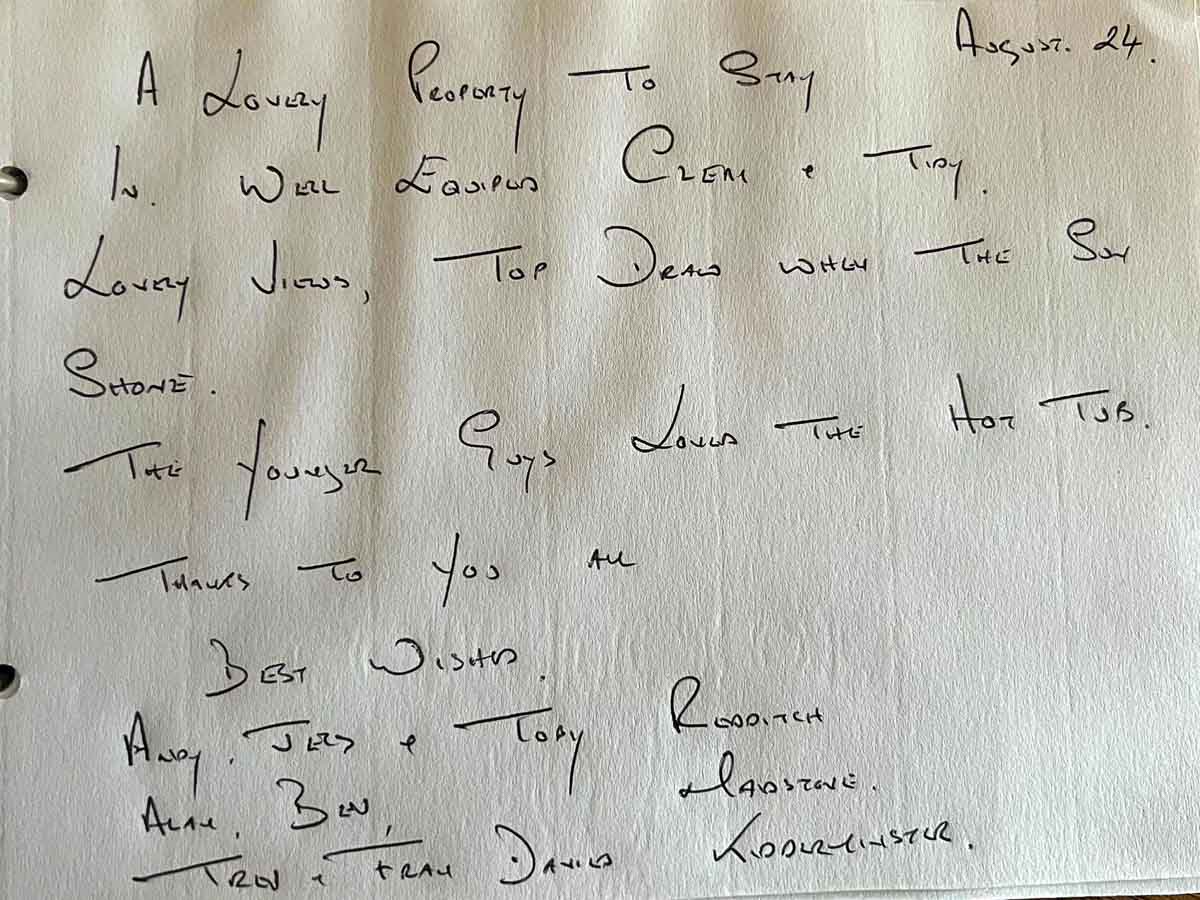 August. 24.
A Lovely Property To Stay
In. Well Equiped Clean + Tidy.
Lovely Views, Top Draw when The Sun
Shone.
The Younger Guys Loved The Hot Tub.
Thanks To You All
Best Wishes.
Andy, + Toby Redditch
Alan, Ben, Maidstone.
Trev + David Kidderminster.